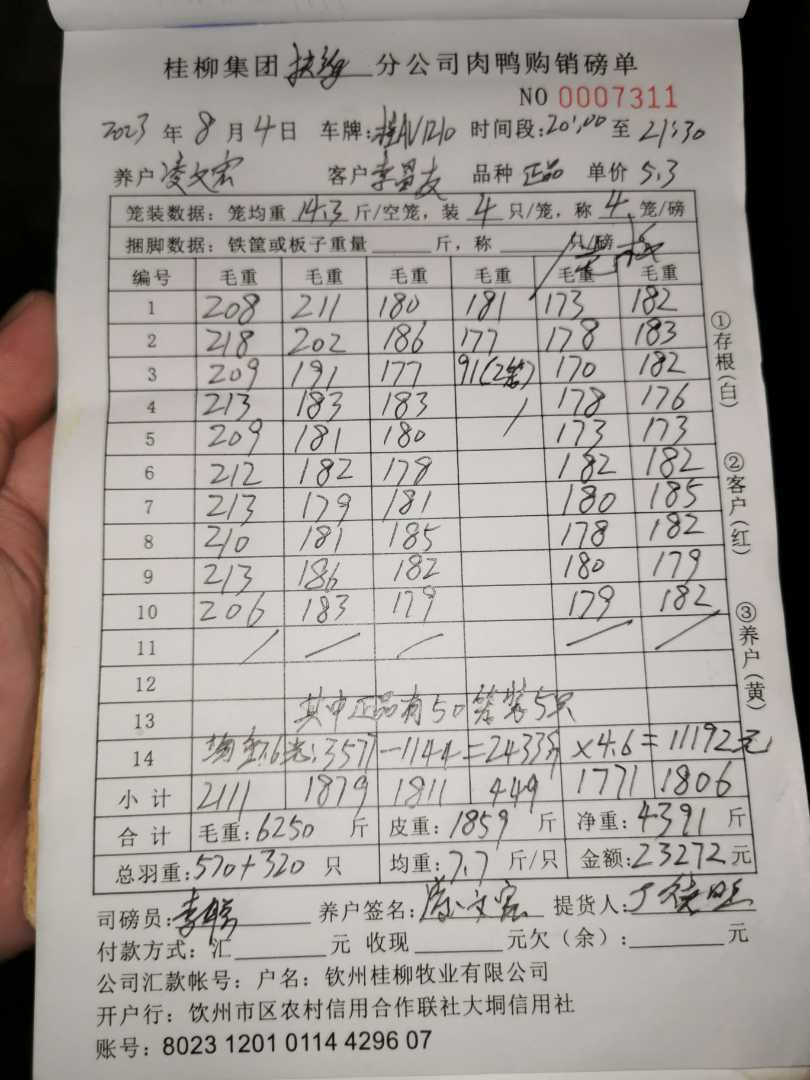 桂柳集团扶绥分公司肉鸭购销磅单
NO 0007311
2023年8月4日 车牌:桂AV1210 时间段:20:00至21:30
养户 凌文宏 客户 李昌友 品种 正品 单价 5.3
笼装数据:笼均重 14.3 斤/空笼,装 4 只/笼,称 4 笼/磅
捆脚数据:铁筐或板子重量 斤,称 只/磅
编号 毛重 毛重 毛重 毛重 毛重 毛重
1 208 211 180 181 173 182
2 218 202 186 177 178 183
3 209 191 177 91(2笼) 170 182
4 213 183 183 / 178 176
5 209 181 180 173 173
6 212 182 178 182 182
7 213 179 181 180 185
8 210 181 185 178 182
9 213 186 182 180 179
10 206 183 179 179 182
11 / / / / /
12
13 其中正品有50笼装5只
14 :3577-1144=2433斤×4.6=11192元
小计 2111 1879 1811 449 1771 1806
合计 毛重:6250斤 皮重:1859斤 净重:4391斤
总羽重:570+320只 均重:7.7斤/只 金额:23272元
司磅员: 养户签名: 提货人:
付款方式:汇 元 收现 元欠(余): 元
公司汇款帐号:户名:钦州桂柳牧业有限公司
开户行:饮州市区农村信用合作联社大垌信用社
账号:8023 1201 0114 4296 07
①存根(白)
②客户(红)
③养户(黄)